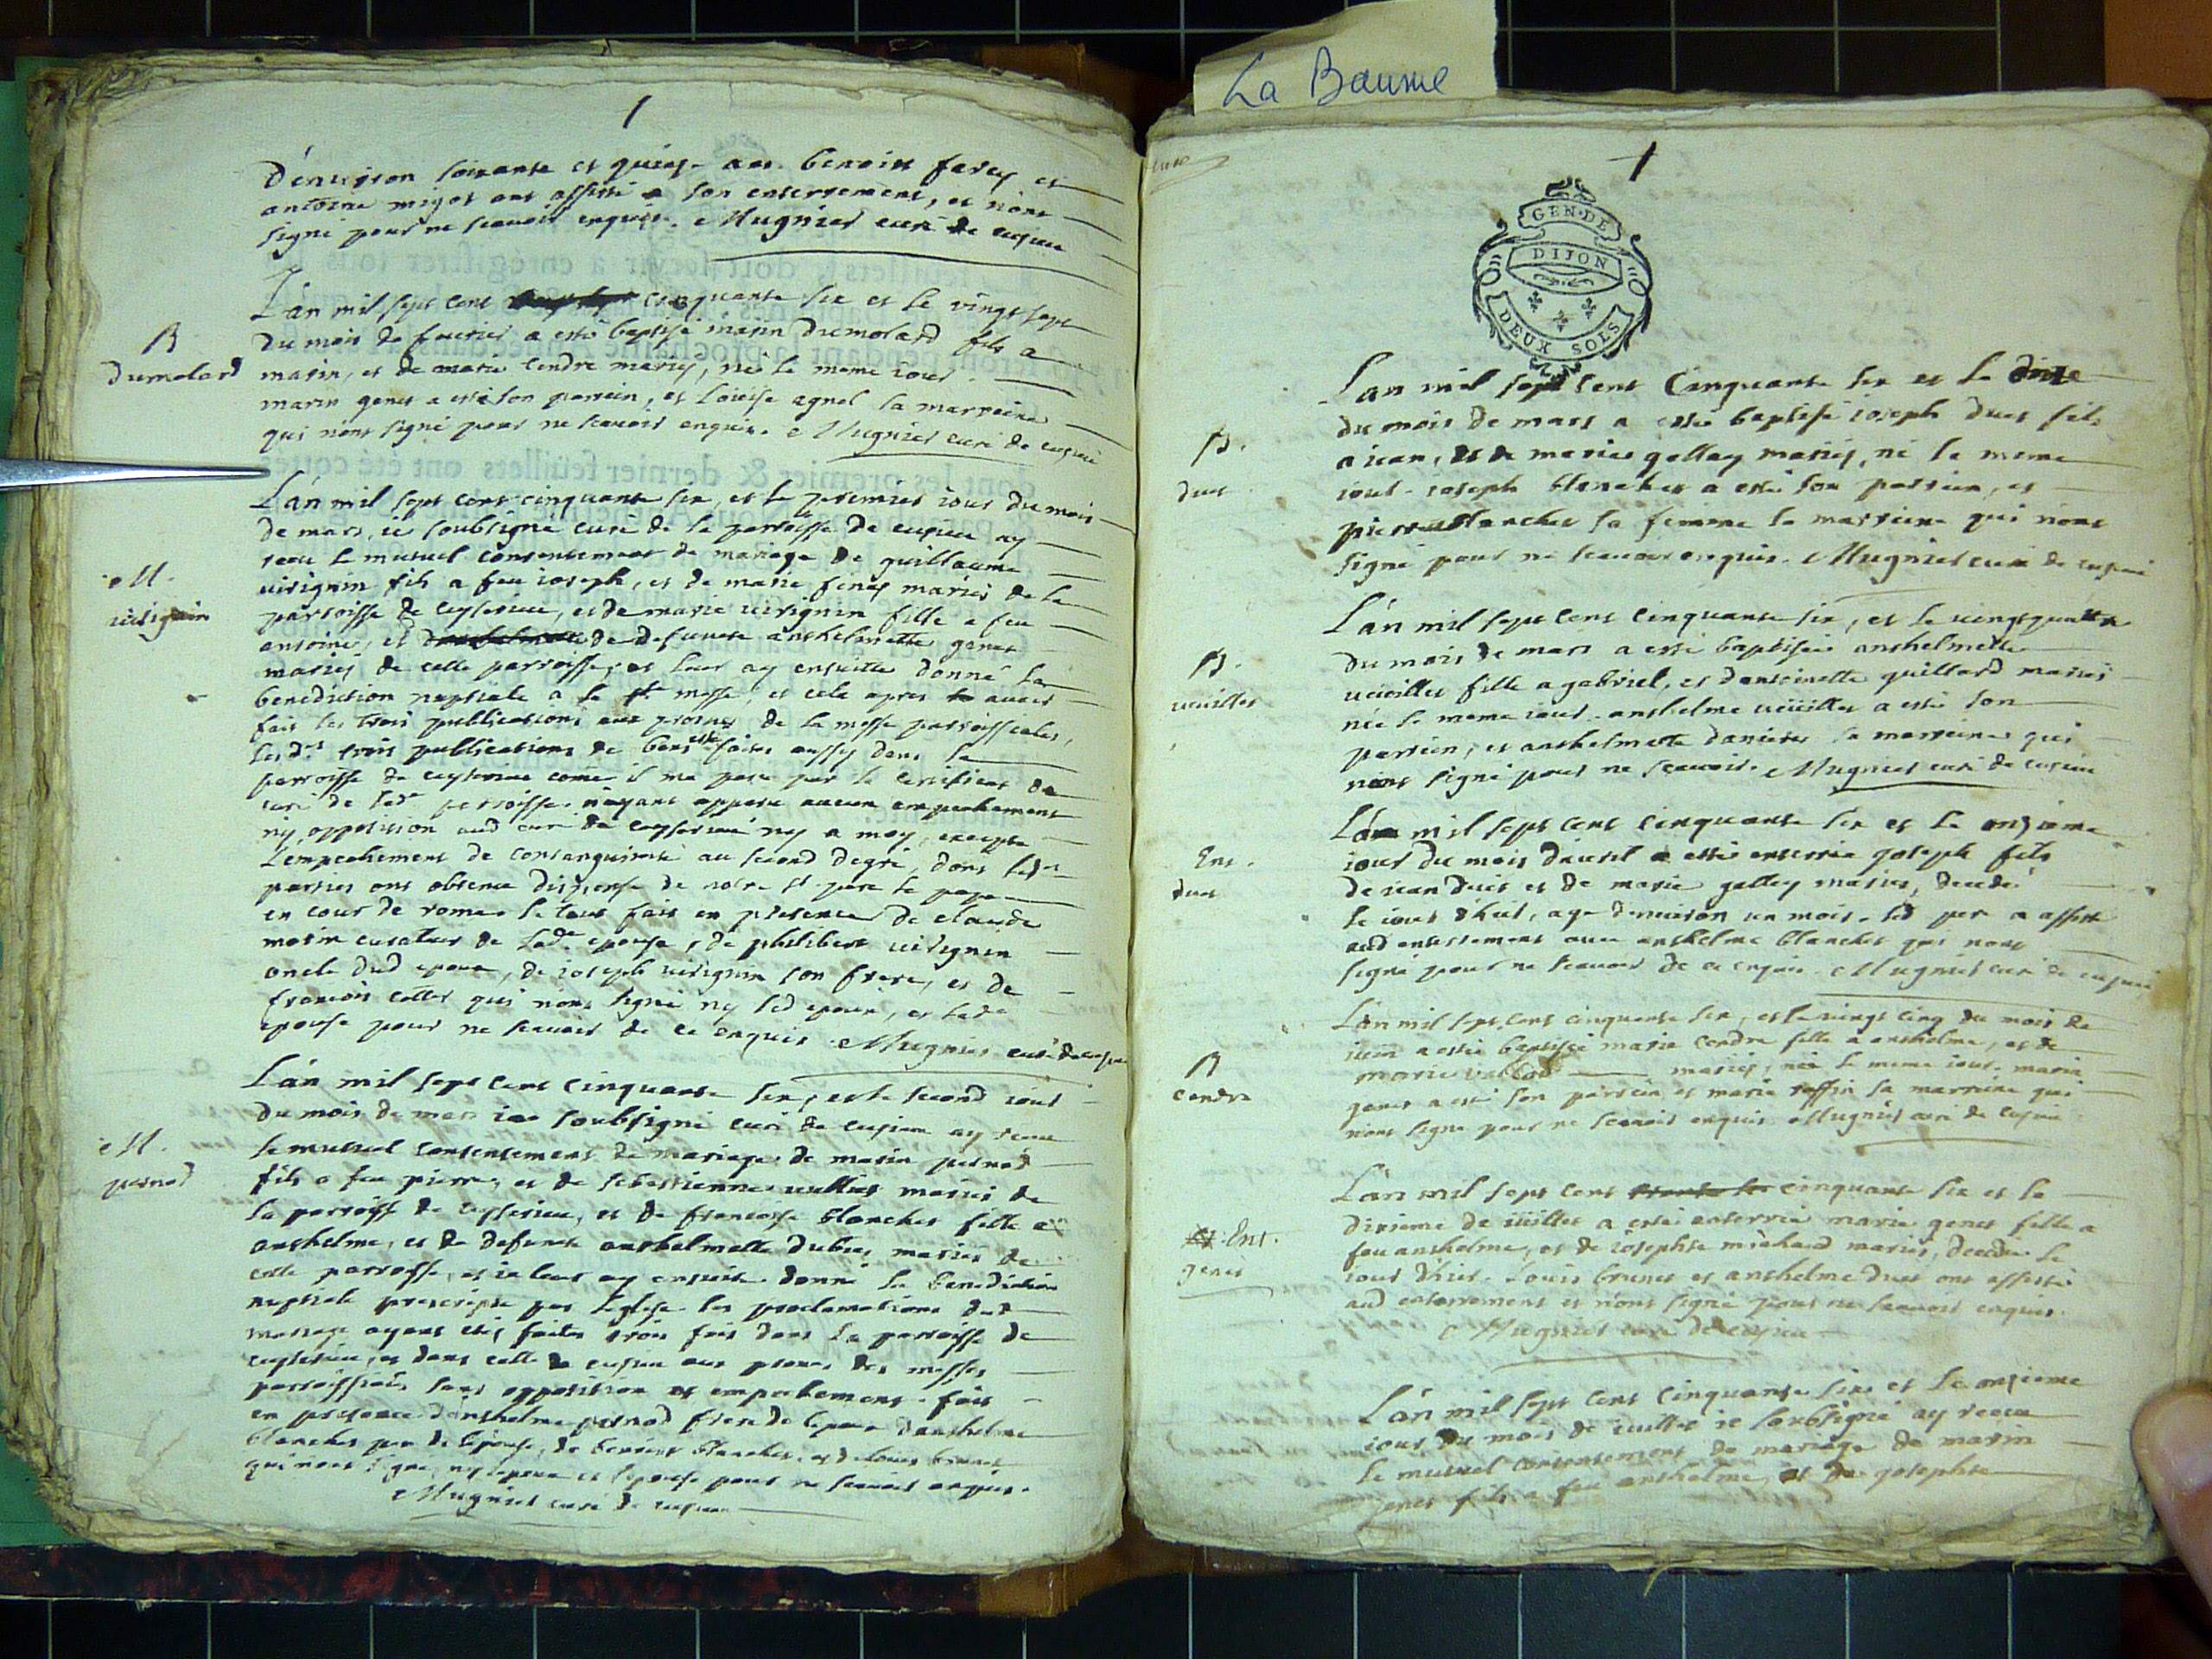 La Baume
1
d'enuiron soixante et quinze ans. benoist ferey et
antoine migot ont assisté a son enterrement, et n'ont
signé pour ne scauoir enquis. Mugnier curé de cusieu
B
dumolard
L'an mil sept cent cinquante six et le vingt sept
du mois de feurier a esté baptisé marin dumolard fils a
marin, et de marie cendre mariés, né le meme iour.
marin genet a esté son parrein, et loüise agnel la marreine
qui n'ont signé pour ne scauoir enquis. Mugnier curé de cusieu
M.
uirignin
L'an mil sept cent cinquante six, et le premier iour du mois
de mars, ie soubsigné curé de la parroisse de cusieu ay
receu le mutuel consentement de mariage de guillaume
uirignin fils a feu ioseph, et de marie mariés de la
parroisse de ceyserieu, et de marie uirignin fille a feu
antoine, et de defuncte anthelmette genet
mariés de cette parroisse, et leur ay ensuitte donné la
benediction nuptiale a la ste messe, et cela apres auoir
fait les trois publications aux prosnes de la messe parroissiales,
lesd. trois publications de bans faites aussy dans la
parroisse de ceyserieu come il ma paru par le certificat du
curé de lade parroisse. n'ayant apparu aucun empechement
ny opposition aud curé de ceyserieu ny a moy, excepté
l'empechement de consanguinité au second degré, dont lesd
parties ont obtenu dispense de notre st pere le pape
en cour de rome. le tout fait en presence de claude
morin curateur de lade epouse, de philibert uirignin
oncle dud epoux, de ioseph uirignin son frere, et de
francois cottet qui n'ont signé ny led epoux, et lade
epouse pour ne scauoir de ce enquis. Mugnier curé de cusieu
M.
pernod
L'an mil sept cent cinquante six, et le second iour
du mois de mars ie soubsigné curé de cusieu ay receu
le mutuel consentement de mariage de marin pernod
fils a feu pierre, et de sebastienne uullier mariés de
la parroisse de ceyserieu, et de francoise blanchet fille a
anthelme, et de defuncte anthelmette dubus mariés de
cette parroisse, et ie leur ay ensuite donné la benediction
nuptiale prescripte par l'eglise. les proclamations dud
mariage ayant etés faites trois fois dans la parroisse de
ceyserieu, et dans celle de cusieu aux prones des messes
parroissiales sans opposition et empechement. fait
en presence d'anthelme pernod frere de lepoux d'anthelme
blanchet pere de l'epouse, de benoist blanchet, et de louis brunet
qui n'ont signé, ny lepoux et l'epouse pour ne scauoir enquis.
Mugnier curé de cusieu
1
GEN. DE
DIJON
DEUX SOLS
B.
duet
L'an mil sept cent cinquante six et le onze
du mois de mars a esté baptisé ioseph duet fils
a iean, et de marie galley mariés, né le meme
iour. ioseph blanchet a esté son parrein, et
pierre blanchet sa femme la marreine qui n'ont
signé pour ne scauoir enquis. Mugnier curé de cusieu
B.
ueüillet
L'an mil sept cent cinquante six, et le uingt quattre
du mois de mars a esté baptisée anthelmette
ueüillet fille a gabriel, et d'antoinette guillard mariés
née le meme iour. anthelme ueüillet a esté son
parrein, et anthelmette la marreine qui
n'ont signé pour ne scauoir. Mugnier curé de cusieu
Ent.
duet
L'an mil sept cent cinquante six et le onzieme
iour du mois d'auril a esté enterré joseph fils
de iean duet et de marie galley mariés, decedé
le iour d'hier, agé d'enuiron un mois. led pere a assisté
aud enterrement auec anthelme blanchet qui n'ont
signé pour ne scauoir de ce enquis. Mugnier curé de cusieu
B
cendre
L'an mil sept cent cinquante six, et le uingt cinq du mois de
iuin a esté baptisée marie cendre fille a anthelme, et de
marie mariés, née le meme iour. marin
genet a esté son parrein et marie ruffin sa marreine qui
n'ont signé pour ne scauoir enquis. Mugnier curé de cusieu
Ent.
genet
L'an mil sept cent cinquante six et le
dixieme de iüillet a esté enterrée marie genet fille a
feu anthelme, et de iosephte michaud mariés, decedée le
iour d'hier. louis brunet et anthelme duet ont assisté
aud enterrement et n'ont signé pour ne scauoir enquis.
Mugnier curé de cusieu
L'an mil sept cent cinquante six et le onzieme
iour du mois de iuillet ie soubsigné ay receu
le mutuel consentement de mariage de marin
genet fils a feu anthelme, et de josephte